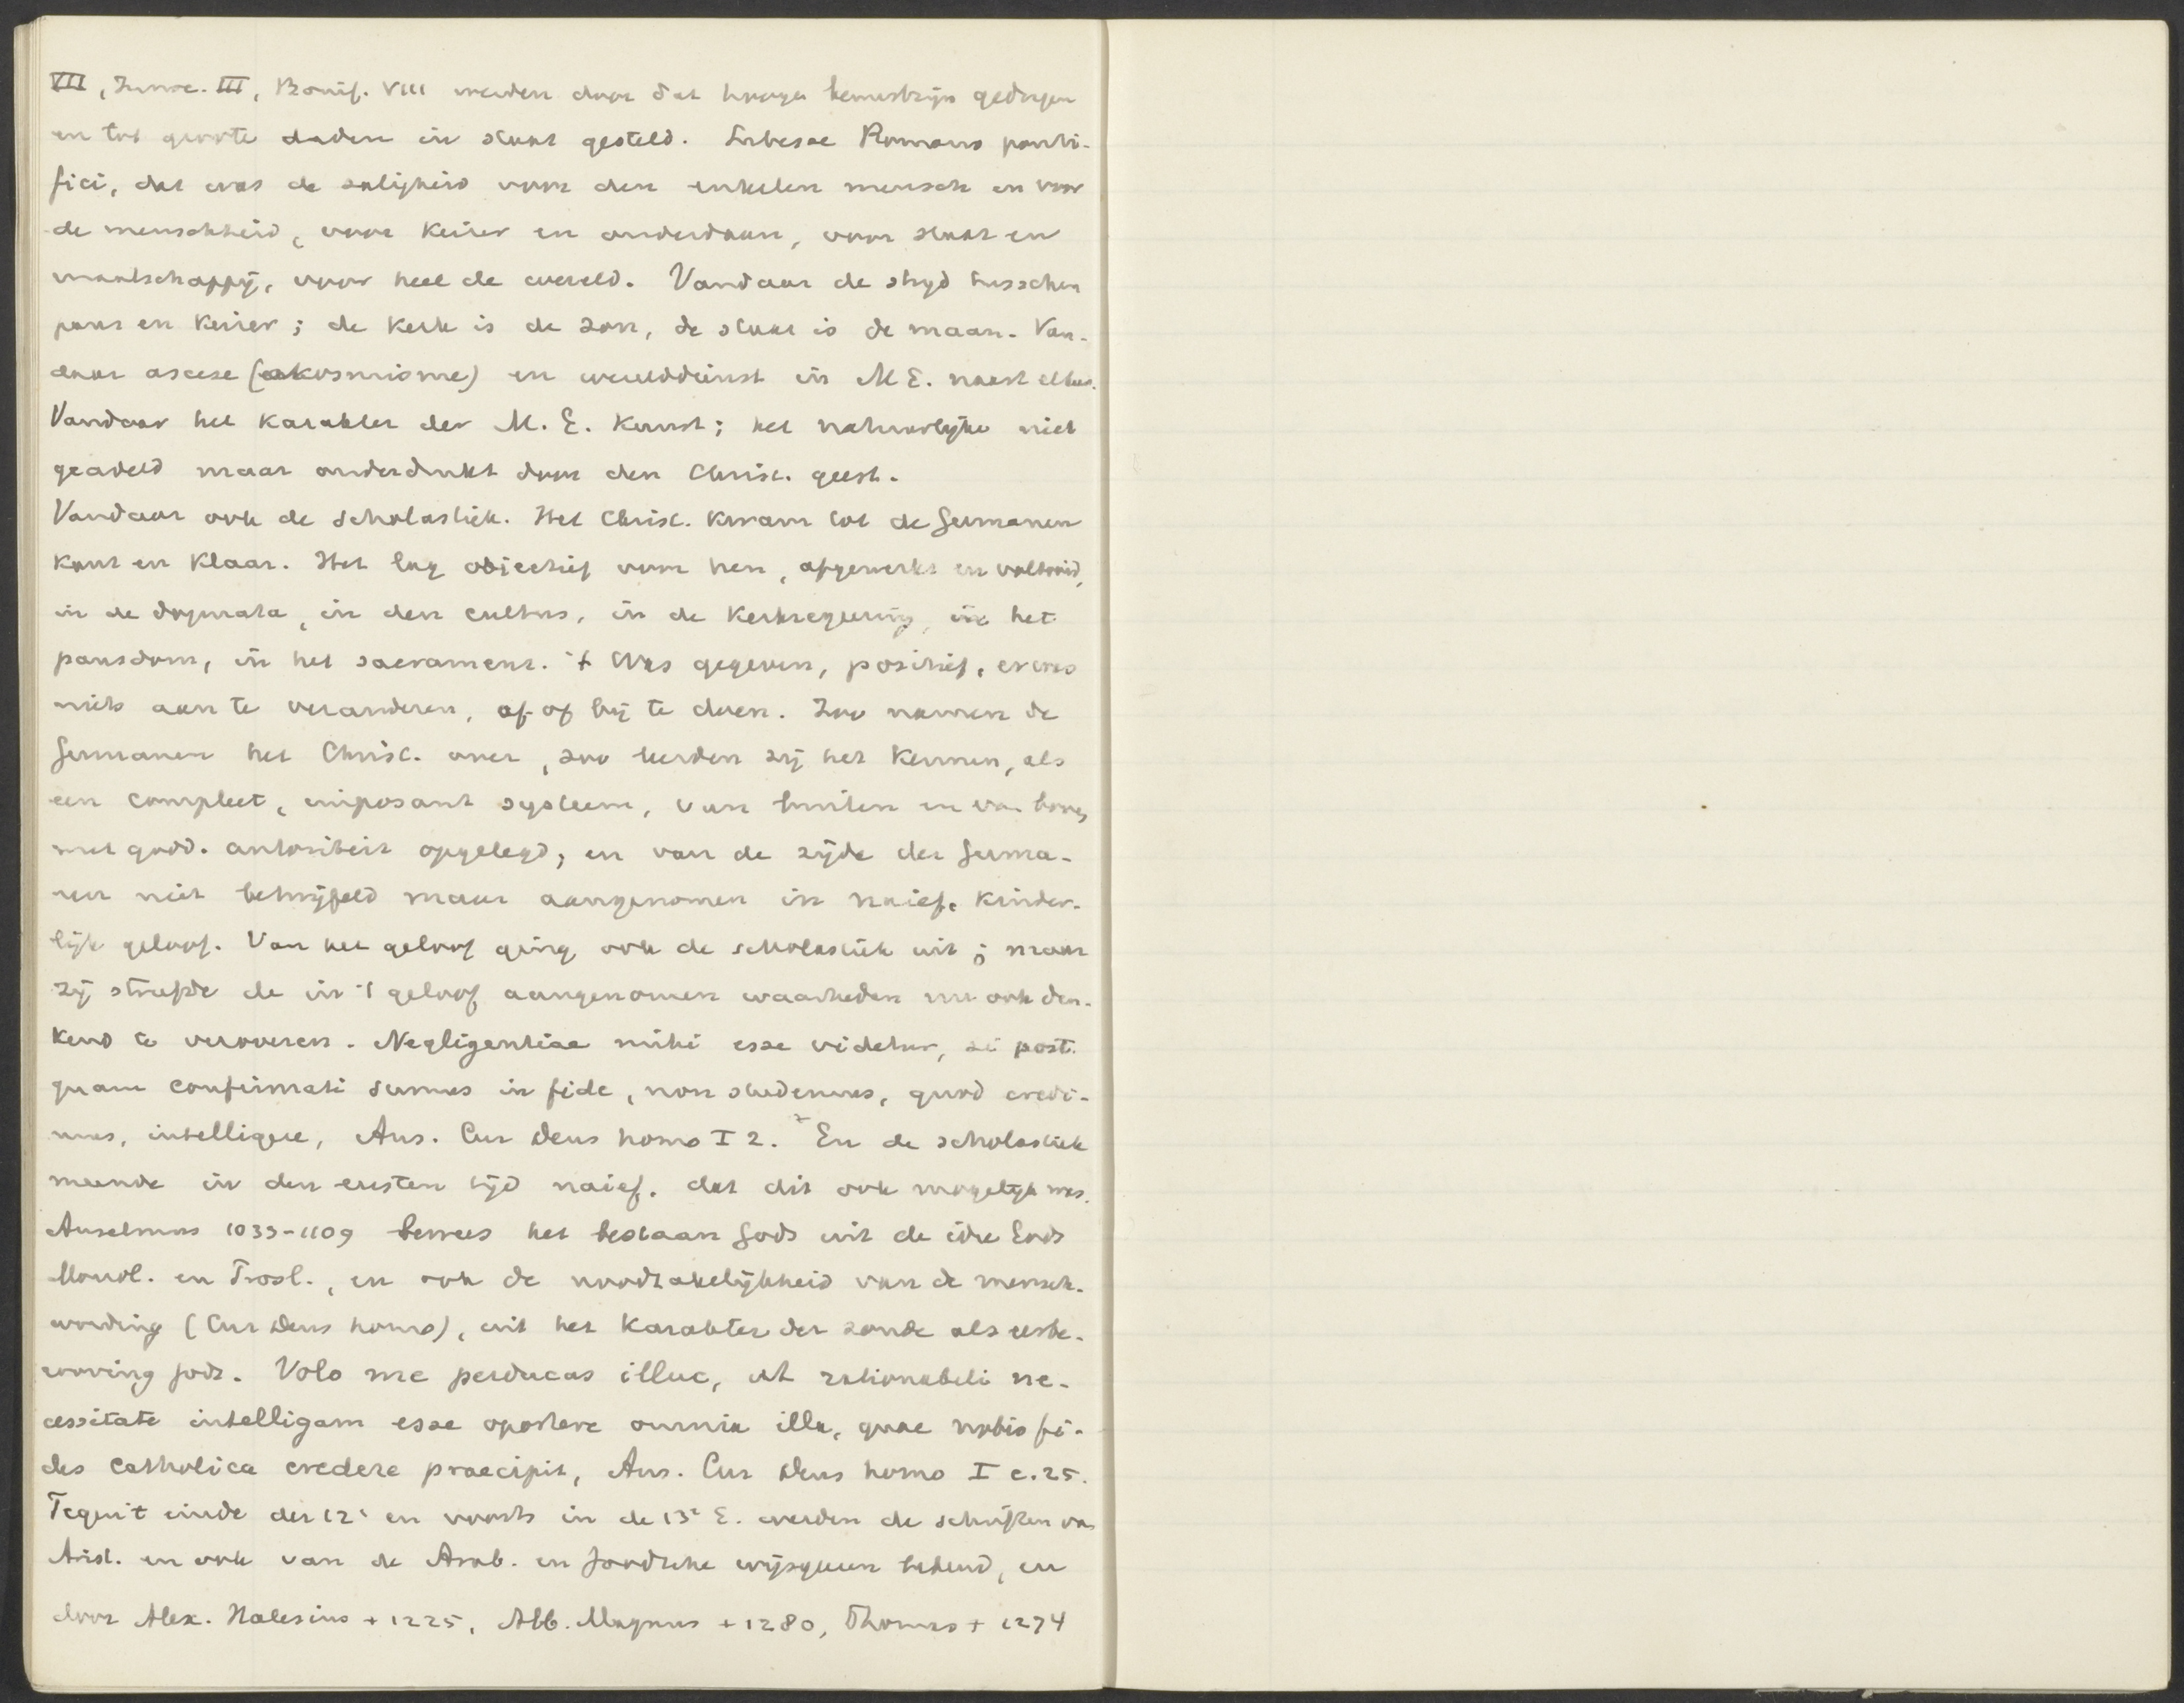 VII, Innoc. III, Bonif. VIII werden door dat hooge bewustzijn gedragen
en tot groote daden in staat gesteld. Subesse Romano ponti-
fici, dat was de zaligheid voor den enkelen mensch en voor
de menschheid, voor Keizer en onderdaan, voor staat en
maatschappij, voor heel de wereld. Vandaar de strijd tusschen
paus en Keizer; de Kerk is de zon, de staat is de maan. Van-
daar ascese (akosmisme) en werelddienst in M E. naast elkaar.
Vandaar het Karakter der M. E. Kunst; het natuurlijke niet
geadeld maar onderdrukt door den Christ. geest.
Vandaar ook de scholastiek. Het Christ. Kwam tot de Germanen
Kant en Klaar. Het lag objectief voor hen, afgewerkt en voltooid,
in de dogmata, in den cultus, in de Kerkregeering, in het
pausdom, in het sacrament. 't Was gegeven, positief, er was
niets aan te veranderen, af of bij te doen. Zoo namen de
Germanen het Christ. over, zoo leerden zij het Kennen, als
een compleet, imposant systeem, van buiten en van boven
met godd. autoriteit opgelegd, en van de zijde der Germa-
nen niet betwijfeld maar aangenomen in naief, Kinder-
lijk geloof. Van het geloof ging ook de scholastiek uit; maar
zij streefde de in 't geloof aangenomen waarheden nu ook den-
Kend te veroveren. Negligentiae mihi esse videtur, si post-
quam confirmati sumus in fide, non studemus, quod credi-
mus, intelligere, Ans. Cur Deus homo I 2. En de scholastiek
meende in den eersten tijd naief, dat dit ook mogelijk was.
Anselmus 1033-1109 bewees het bestaan Gods uit de idee Gods
Monol. en Prosl., en ook de noodzakelijkheid van de mensch-
wording (Cur Deus homo), uit het Karakter der zonde als eerbe-
rooving Gods. Volo me perducas illuc, ut rationabili ne-
cessitate intelligam esse oportere omnia illa, quae nobis fi-
des Catholica credere praecipit, Ans. Cur Deus homo I c. 25.
Tegen 't einde der 12e en voorts in de 13e E. werden de schriften van
Arist. en ook van de Arab. en Joodsche wijsgeeren bekend, en
door Alex. Halesius + 1225, Alb. Magnus + 1280, Thomas + 1274